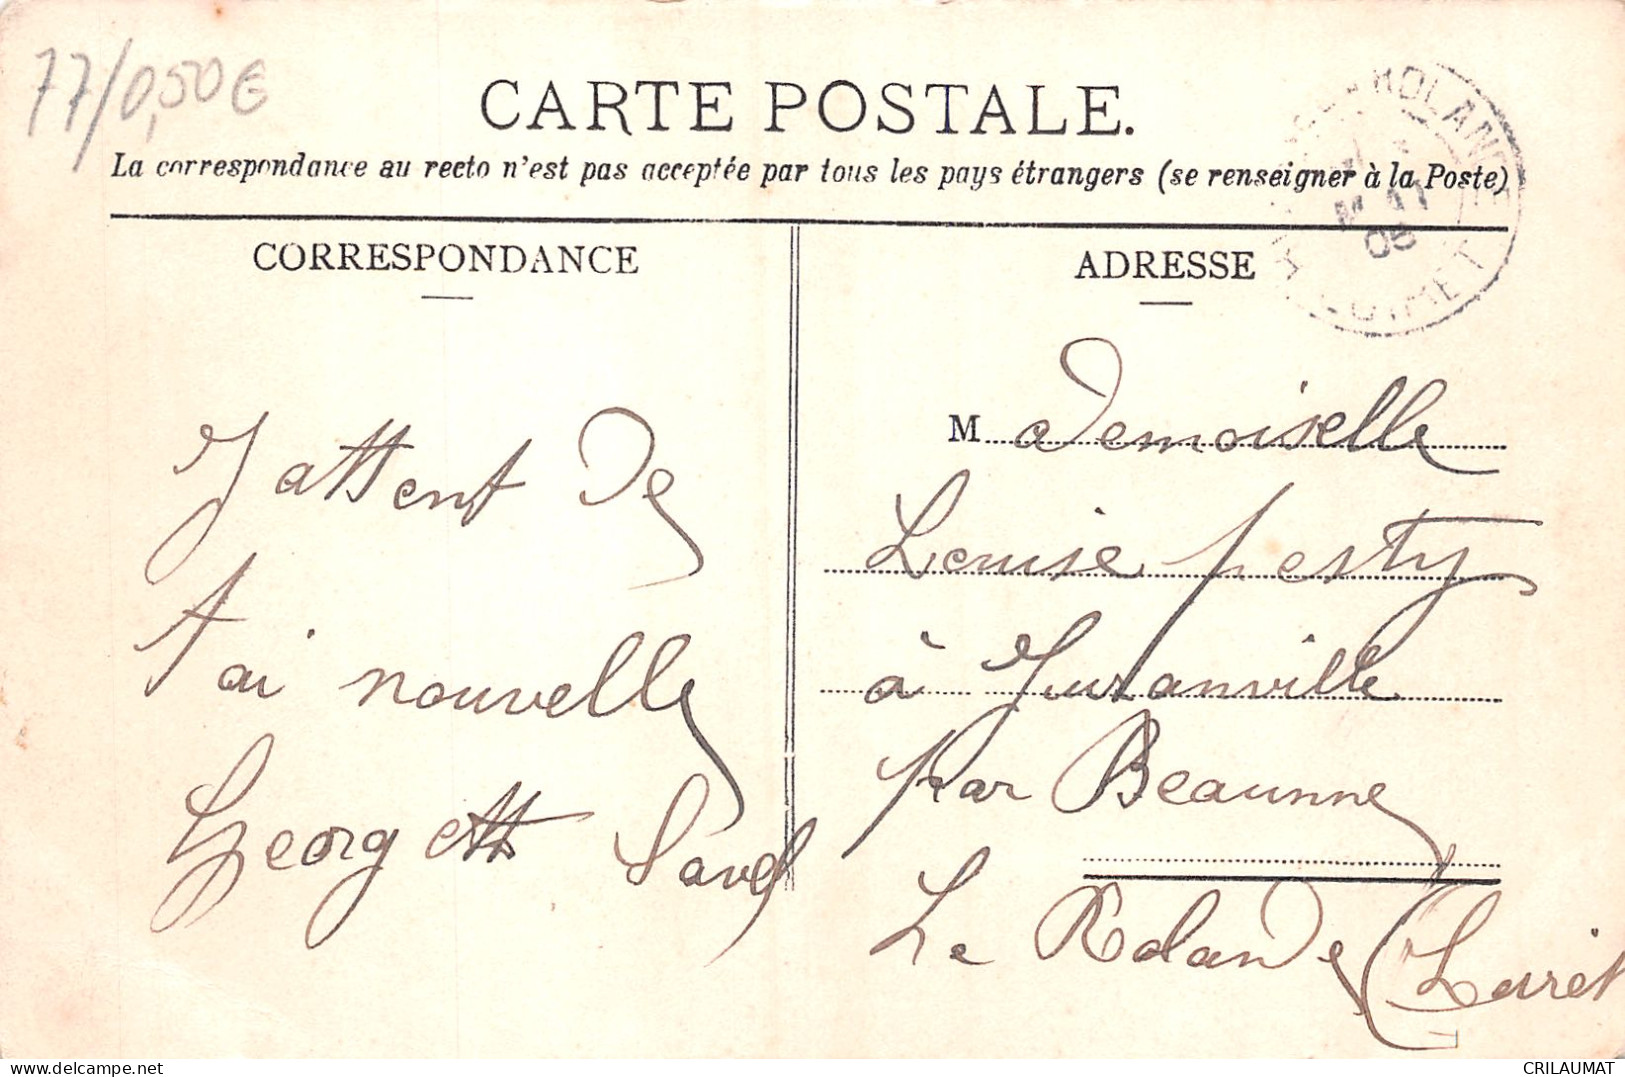 77/0,50€
CARTE POSTALE.
La correspondance au recto n'est pas acceptée par tous les pays étrangers (se renseigner à la Poste)
CORRESPONDANCE
ADRESSE
J attent de
t ai nouvelle
Georgette Savel
Mademoiselle
Louise pesty
à Juranville
par Beaunne
La Rolande (Loiret
ROLANDE
05
LOIRET
delcampe.net
CRILAUMAT